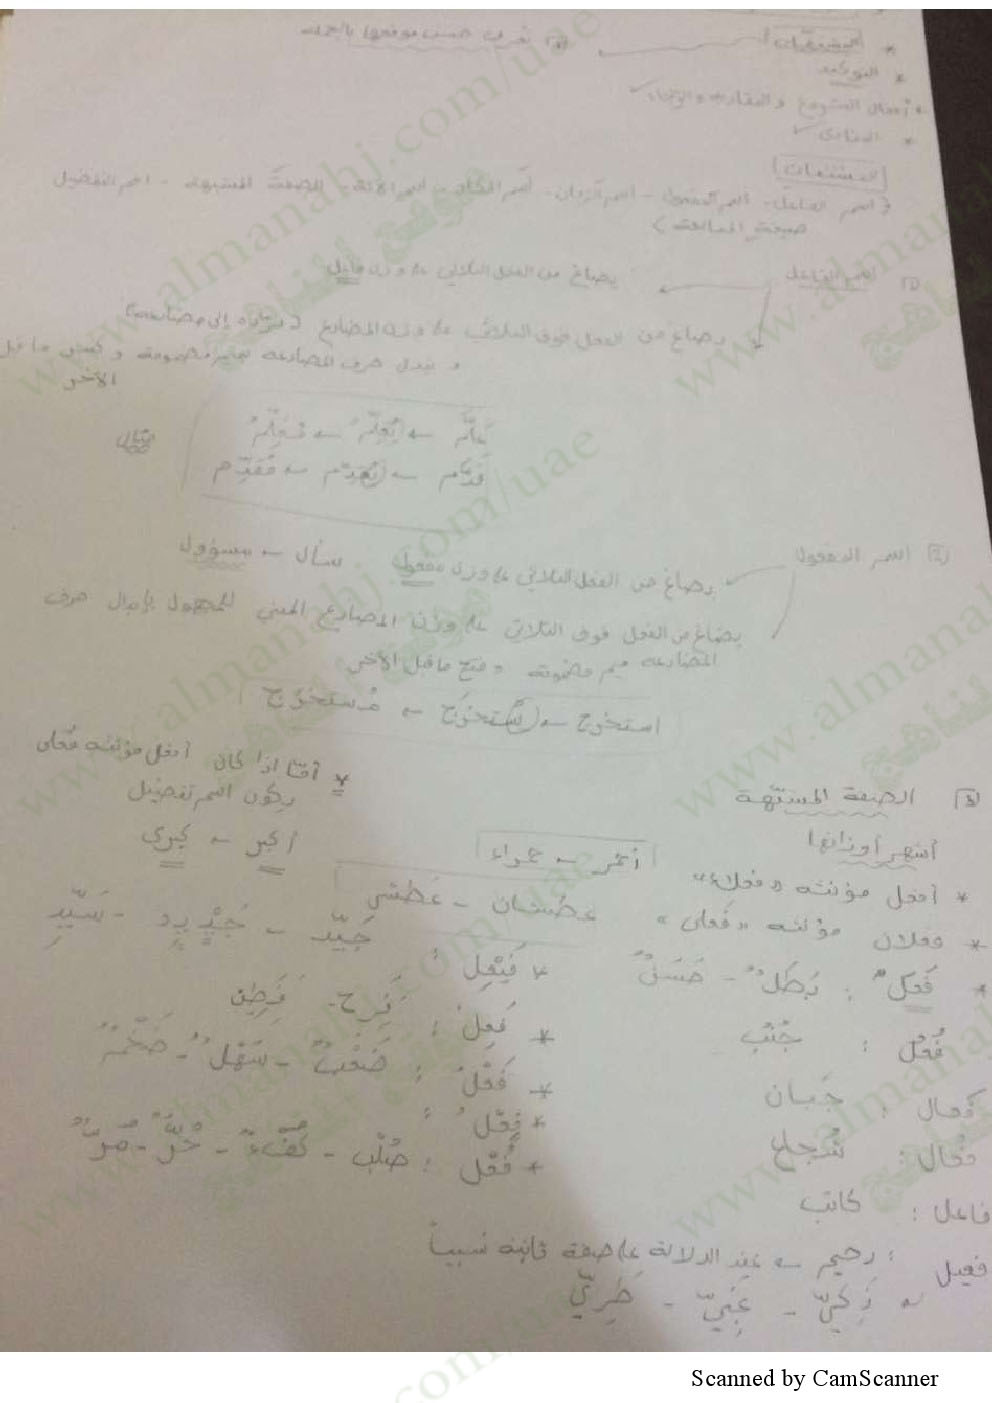 * المشتقات تعرف حسب موقعها بالجملة
* التوكيد
* أفعال الشروع والمقاربة والرجاء
* المنادى
المشتقات
(اسم الفاعل - اسم المفعول - اسم الزمان - اسم المكان - اسم الآلة - الصفة المشبهة - اسم التفضيل
صيغة المبالغة)
١) اسم الفاعل يصاغ من الفعل الثلاثي على وزن فاعل
يصاغ من الفعل فوق الثلاثي على وزن المضارع (برده إلى مضارعه)
و يبدل حرف المضارعة ميم مضمومة و كسر ما قبل
الآخر
مثال عَلَّم ← يُعَلِّم ← مُعَلِّم
قَدَّم ← يُقَدِّم ← مُقَدِّم
٢) اسم المفعول
يصاغ من الفعل الثلاثي على وزن مفعول سأل ← مسؤول
يصاغ من الفعل فوق الثلاثي على وزن المضارع المبني للمجهول بإبدال حرف
المضارعة ميم مضمومة و فتح ما قبل الآخر
استخرج ← يُستخرَج ← مُستخرَج
٣) الصفة المشبهة
* أمّا اذا كان أفعل مؤنثه فُعلى
يكون اسم تفضيل
أكبر - كبرى
أشهر أوزانها
* أفعل مؤنثه "فعلاء" أحمر - حمراء
* فعلان مؤنثه "فَعلى" عطشان - عَطشى
* فَعَلٌ : بَطَلٌ - حَسَنٌ
* فَيْعِل : جَيّد - سَيّد
فُعُل : جُنُب
* فَعِل : فَرِح - فَطِن
فَعال : جَبان
* فَعْل : صَعْبٌ - سَهْلٌ - ضَخْمٌ
فُعال : شُجاع
* فِعْل :
* فُعْل : صُلْب - كُفْءٌ - حُرٌّ - مُرٌّ
فاعل : كاتب
فعيل : رحيم ← عند الدلالة على صفة ثابتة نسبياً
← ذَكيّ - غَنيّ - طَريّ
www.almanahj.com/uae
موقع المناهج
Scanned by CamScanner